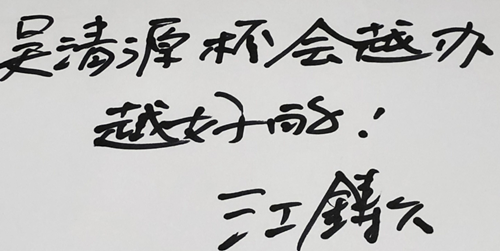 吴清源杯会越办
越好的！
江鋳久